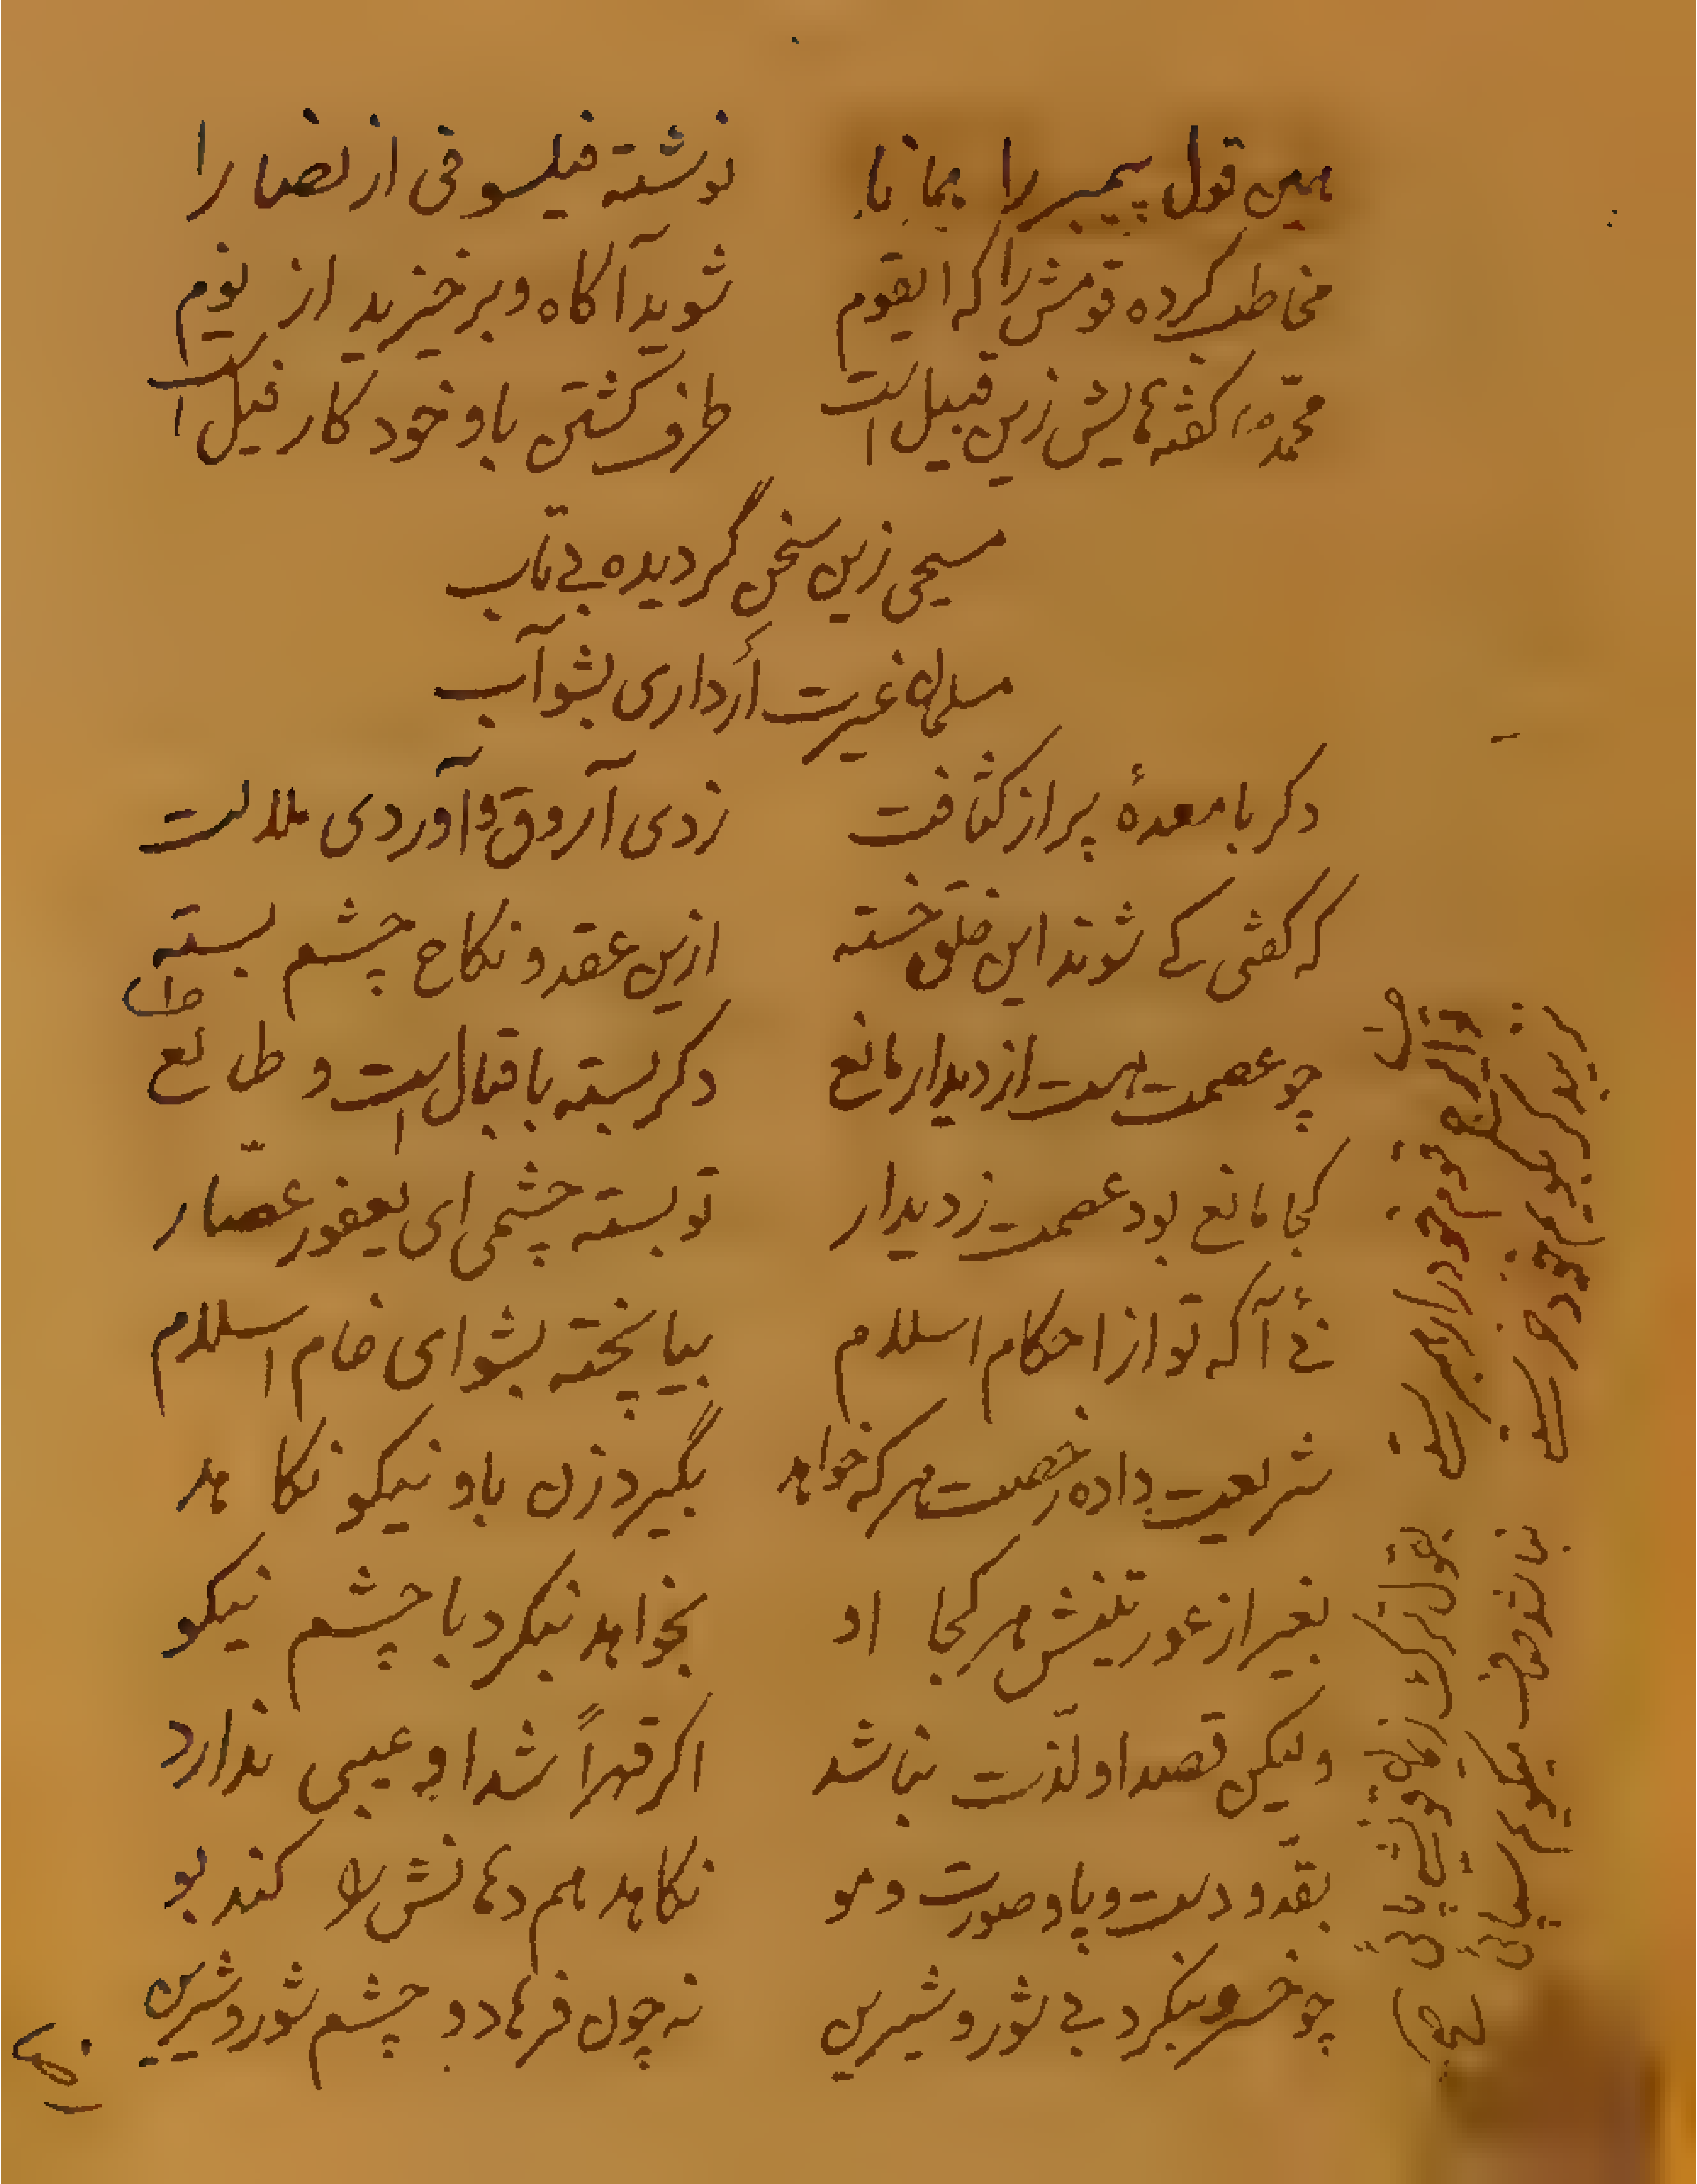 همین قول پیمبر را همانا نوشته فیلسوفی از نصارا
مخاطب کرده قومش را که ایقوم شوید آکاه و برخیزید از نوم
محمّد ص کفته‌هایش زین قبیل است طرف کشتی باو خود کار فیل است
مسیحی زین سخن گردیده بی تاب
مسلمان غیرت أر داری بشو آب
دکر با معدۀ پر از کثافت زدی آروق و آوردی ملالت
که کفتی کے شوند این خلق خسته ازین عقد و نکاح چشم بسته
چو عصمت هست از دیدار مانع دکر بسته باقبال است و طالع
کجا مانع بود عصمت ز دیدار تو بسته چشمی ای یعفور عصّار
نۓ آکه تو از احکام اسلام بیا پخته بشو ای خام اسلام
شریعت داده رخصت هر که خواهد بگیرد زن باو نیکو نکاهد
بغیر از عورتینش هر کجا او بخواهد نیکرد با چشم نیکو
ولیکن قصد او لذّت نباشد اکر قهراً شد او عیبی ندارد
بقدّ و دست و پا و صورت و مو نکاهد هم دهانش را کند بو
چو خسرو نیکرد بی شور و شیرین نه چون فرهاد و چشم شور و شیرین